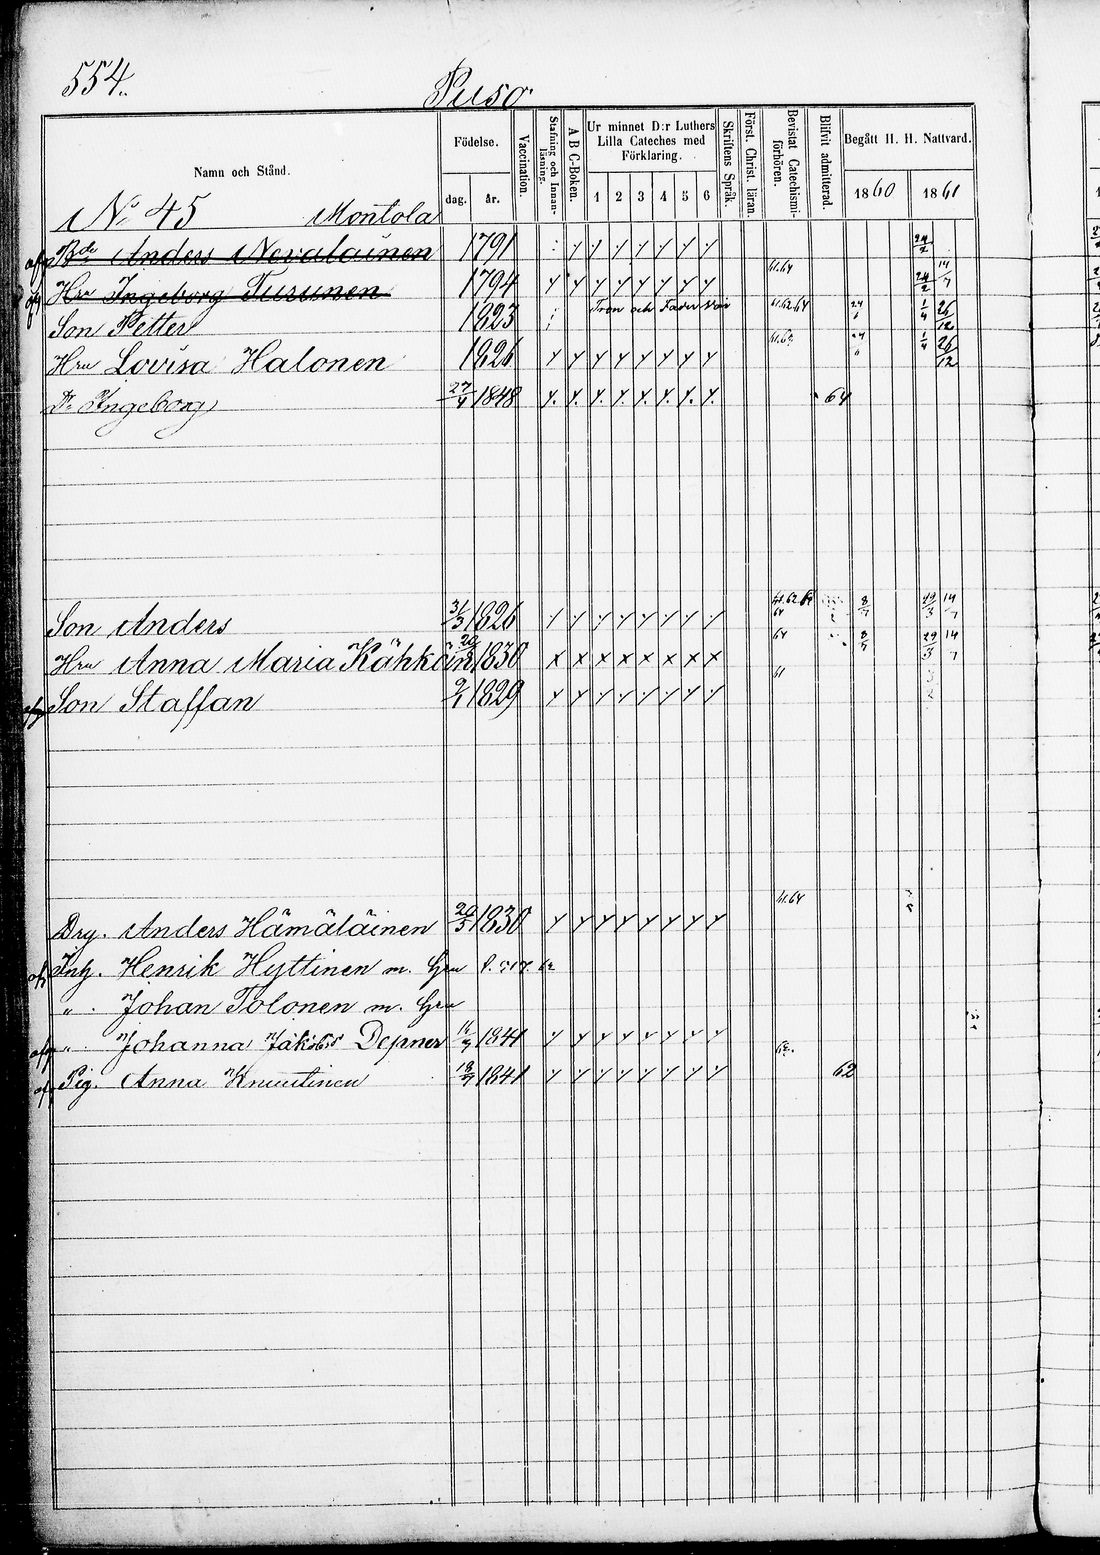 554.
Puso
Namn och Stånd.
Födelse.
dag. år.
Vaccination.
Stafning och Innanläsning.
A B C-Boken.
Ur minnet D:r Luthers Lilla Cateches med Förklaring.
1 2 3 4 5 6
Skriftens Språk.
Först. Christ. läran.
Bevistat Catechismiförhören.
Blifvit admitterad.
Begått H. H. Nattvard.
1860 1861
No 45 Montola
Anders Nevalainen 1791 24/2
Hru Ingeborg Turunen 1794 61.64 24/2 14/7
Son Petter 1823 Tron och Fader Vår 61.62.64 1/4 26/12
Hru Lovisa Halonen 1826 1/4 26/12
Dr Ingeborg 27/4 1848 64
Son Anders 1826 8/7 14/7
Hru Anna Maria Kähköin 1830 64 8/7 29/3 14/7
Son Staffan 1829 61
Drg. Anders Hämäläinen 20/3 1830 61.64
Inh. Henrik Hyttinen m. Hru
" Johan Tolonen m. Hru
" Johanna Jakobs Depner 1841
Pig. Anna Knuutinen 1841 62